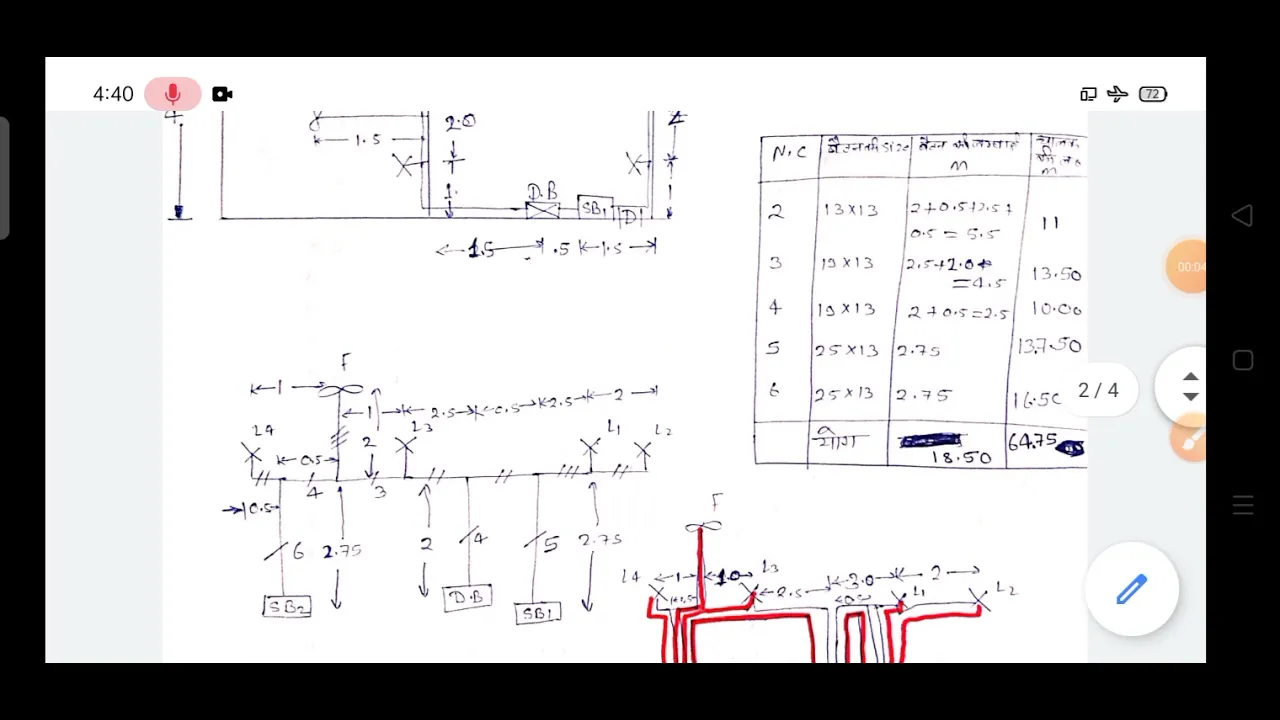 4:40
72
4.
1.5
2.0
1.
D.B
SB1
D
2
1
1.5
.5
1.5
N.C
M
M
2
13×13
2+0.5+2.5+
0.5 = 5.5
11
3
19×13
2.5+2.0+
=4.5
13.50
4
19×13
2+0.5=2.5
10.00
5
25×13
2.75
13.7.50
6
25×13
2.75
16.50
योग
18.50
64.75
00:04
2/4
F
1
1
2.5
0.5
2.5
2
L4
L3
L1
L2
0.5
2
4
3
0.5
6
2.75
2
4
5
2.75
SB2
D.B
SB1
F
L4
1
1.0
L3
2.5
3.0
2
L1
L2